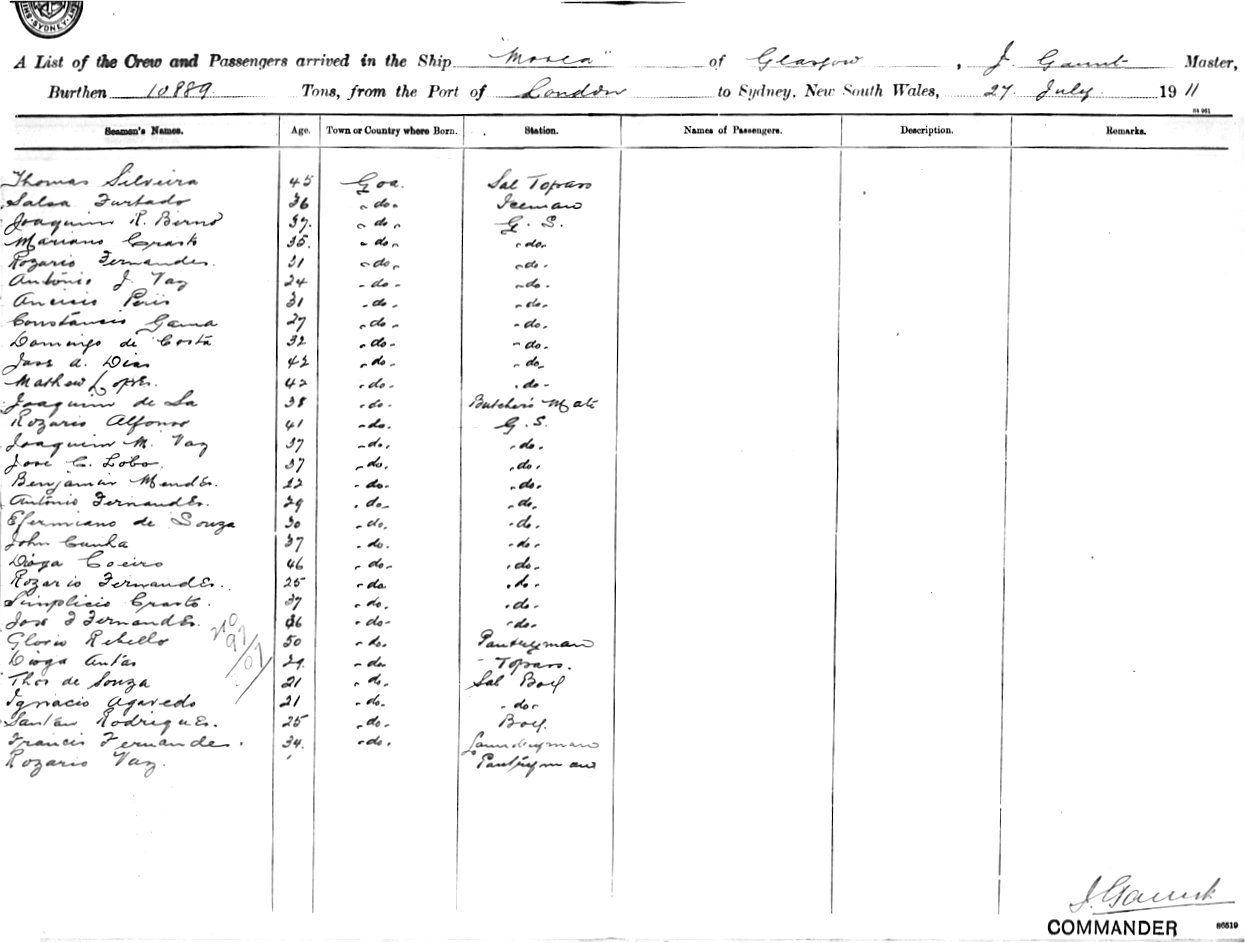 SYDNEY
A List of the Crew and Passengers arrived in the Ship "Morea" of Glasgow, J. Gaunt Master,
Burthen 10889 Tons, from the Port of London to Sydney, New South Wales, 27 July 1911
Seamen's Names. Age. Town or Country where Born. Station. Names of Passengers. Description. Remarks.
Thomas Silveira 45 Goa. Sal Topass
Salsa Furtado 36 - do - Iceman
Joaquim R. 37. - do - G. S.
Mariano Crasto 35. - do - - do -
Rozario Fernandes. 31 - do - - do -
António J. Vaz 24 - do - - do -
31 - do - - do -
Constáncio Gama 27 - do - - do -
Domingo de Costa 32 - do - - do -
Jose A. Dias 42 - do - - do -
Mathew Lopes. 42 - do - - do -
Joaquim de Sa 38 - do - Butcher's Mate
Rozario Alfonso 41 - do - G. S.
Joaquim M. Vaz 37 - do - - do -
Jose C. Lobo. 37 - do - - do -
Benjamin Mendes. 22 - do - - do -
António Fernandes. 29 - do - - do -
Efermiano de Souza 30 - do - - do -
John Cunha 37 - do - - do -
Dioga Coeiro 46 - do - - do -
Rozario Fernandes. 25 - do - - do -
Simplicio Crasto. 37 - do - - do -
Jose F Fernandes. 36 - do - - do -
No 97/07
Glorio Rebello 50 - do - Pantryman
Dioga Antao 29. - do - Topass.
Thos de Souza 21 - do - Sal Boy
Ignacio Agavedo 21 - do - - do -
Santan Rodrigues. 25 - do - Boy.
Francis Fernandes. 34. - do - Laundryman
Rozario Vaz. Pantryman
J. Gaunt
COMMANDER 86519